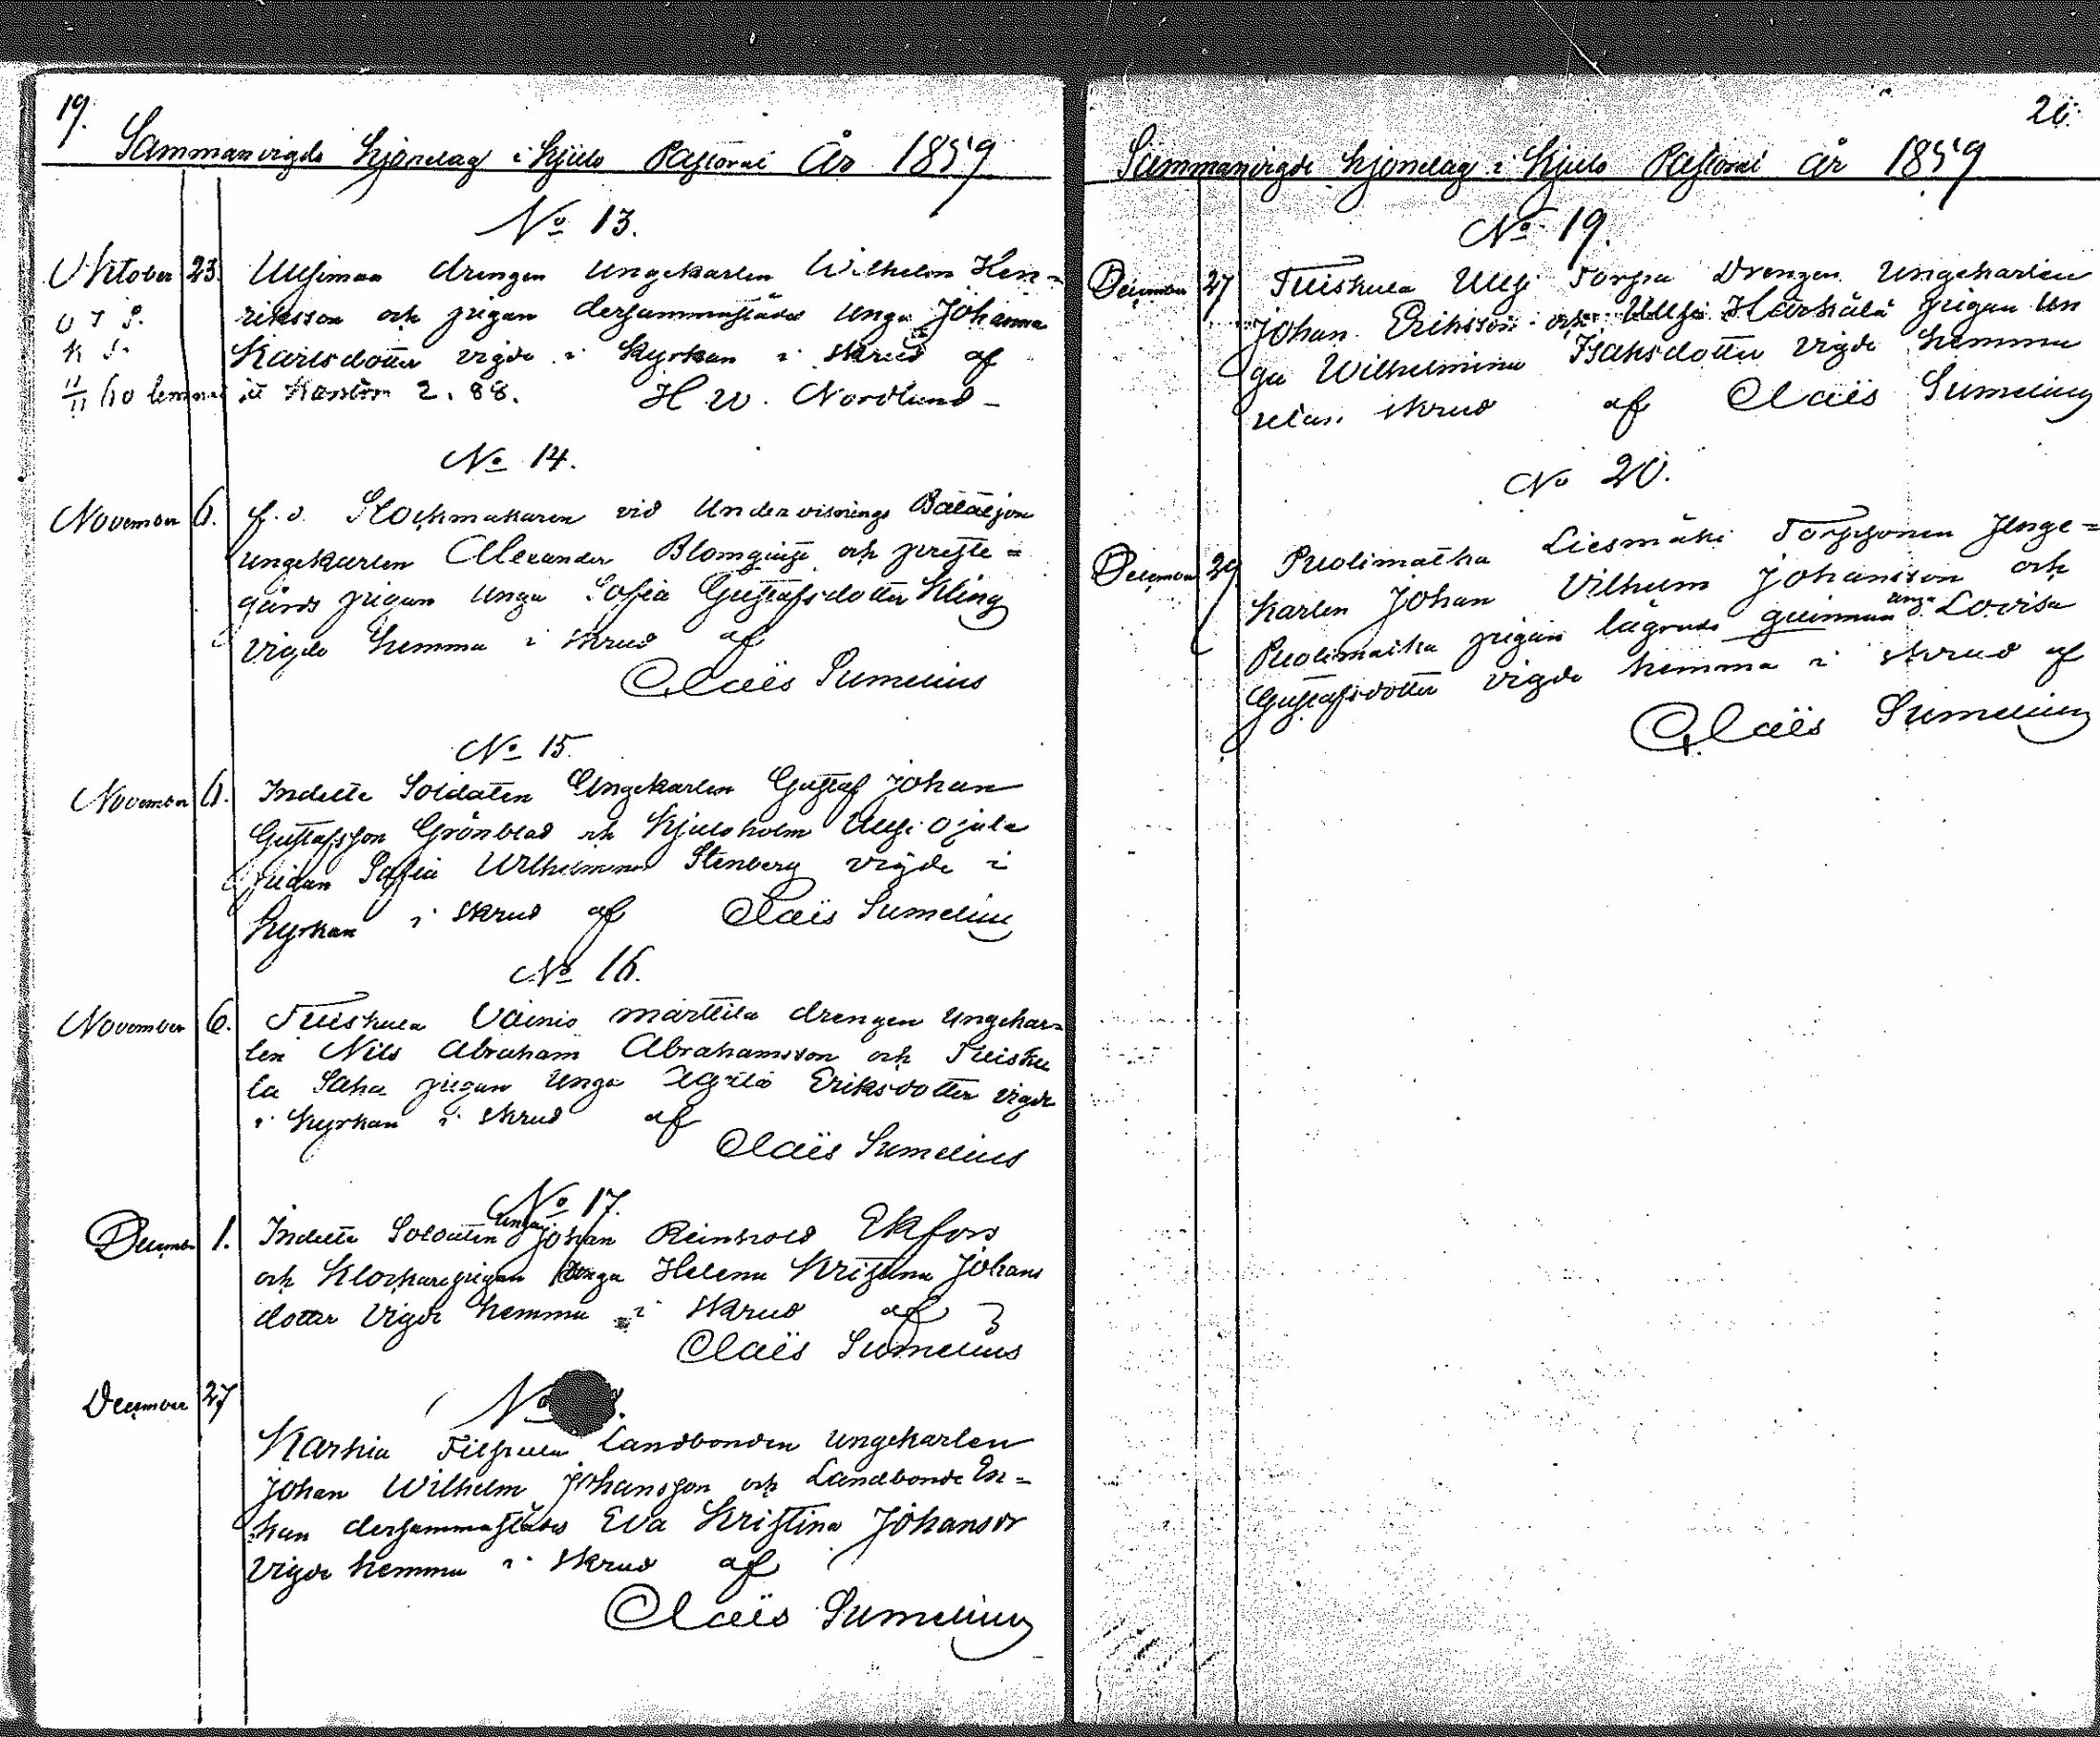 19.
Sammanvigde hjonelag i Kjulo Pastorat År 1859
No 13.
Oktober 23. Uusimaa drengen Ungekarlen Wilhelm Hen=
riksson och pigan dersammastädes Unga Johanna
Karlsdotter vigde i Kyrkan i skrud af
H W. Nordlund
No 14.
November 6. f.d. Klockmakaren vid Undervisnings Bataljon
ungekarlen Alexander Blomqvist och preste=
gårds pigan Unga Sofia Gustafsdotter Kling
vigde hemma i skrud af
Claës Sumelius
No 15.
November 6. Indelte Soldaten Ungekarlen Gustaf Johan
Gustafsson Grönblad och Kjuloholm Ulfsi Ojala
pigan Sofia Wilhelmina Stenberg vigde i
Kyrkan i skrud af Claës Sumelius
No 16.
November 6. Tuiskula Vainio märttilä drengen Ungekar=
len Nils Abraham Abrahamsson och Tuisku
la Saha pigan Unga Agata Eriksdotter vigde
i Kyrkan i skrud af
Claës Sumelius
No 17.
December 1. Indelte Soldaten Unga Johan Reinhold Ekfors
och Klockarepigan Unga Helena Kristina Johans
dotter vigde hemma i skrud af
Claës Sumelius
No 8.
December 27 Karhia Filppula Landbonden ungekarlen
Johan Wilhelm Johansson och Landbonde En=
kan dersammastädes Eva Kristina Johansdr
vigde hemma i skrud af
Claës Sumelius
20.
Sammanvigde hjonelag i Kjulo Pastorat år 1859
No 19.
December 27 Tuiskula Torpa Drengen Ungekarlen
Johan Eriksson och Härkälä pigan Un
ga Wilhelmina Isaksdotter vigde hemma
utan skrud af Claës Sumelius
No 20.
December 29 Puolimatka Liesmäki Torpsonen Unge=
karlen Johan Vilhelm Johansson och
Puolimatka pigan lägrade qvinnan unga Lovisa
Gustafsdotter vigde hemma i skrud af
Claës Sumelius